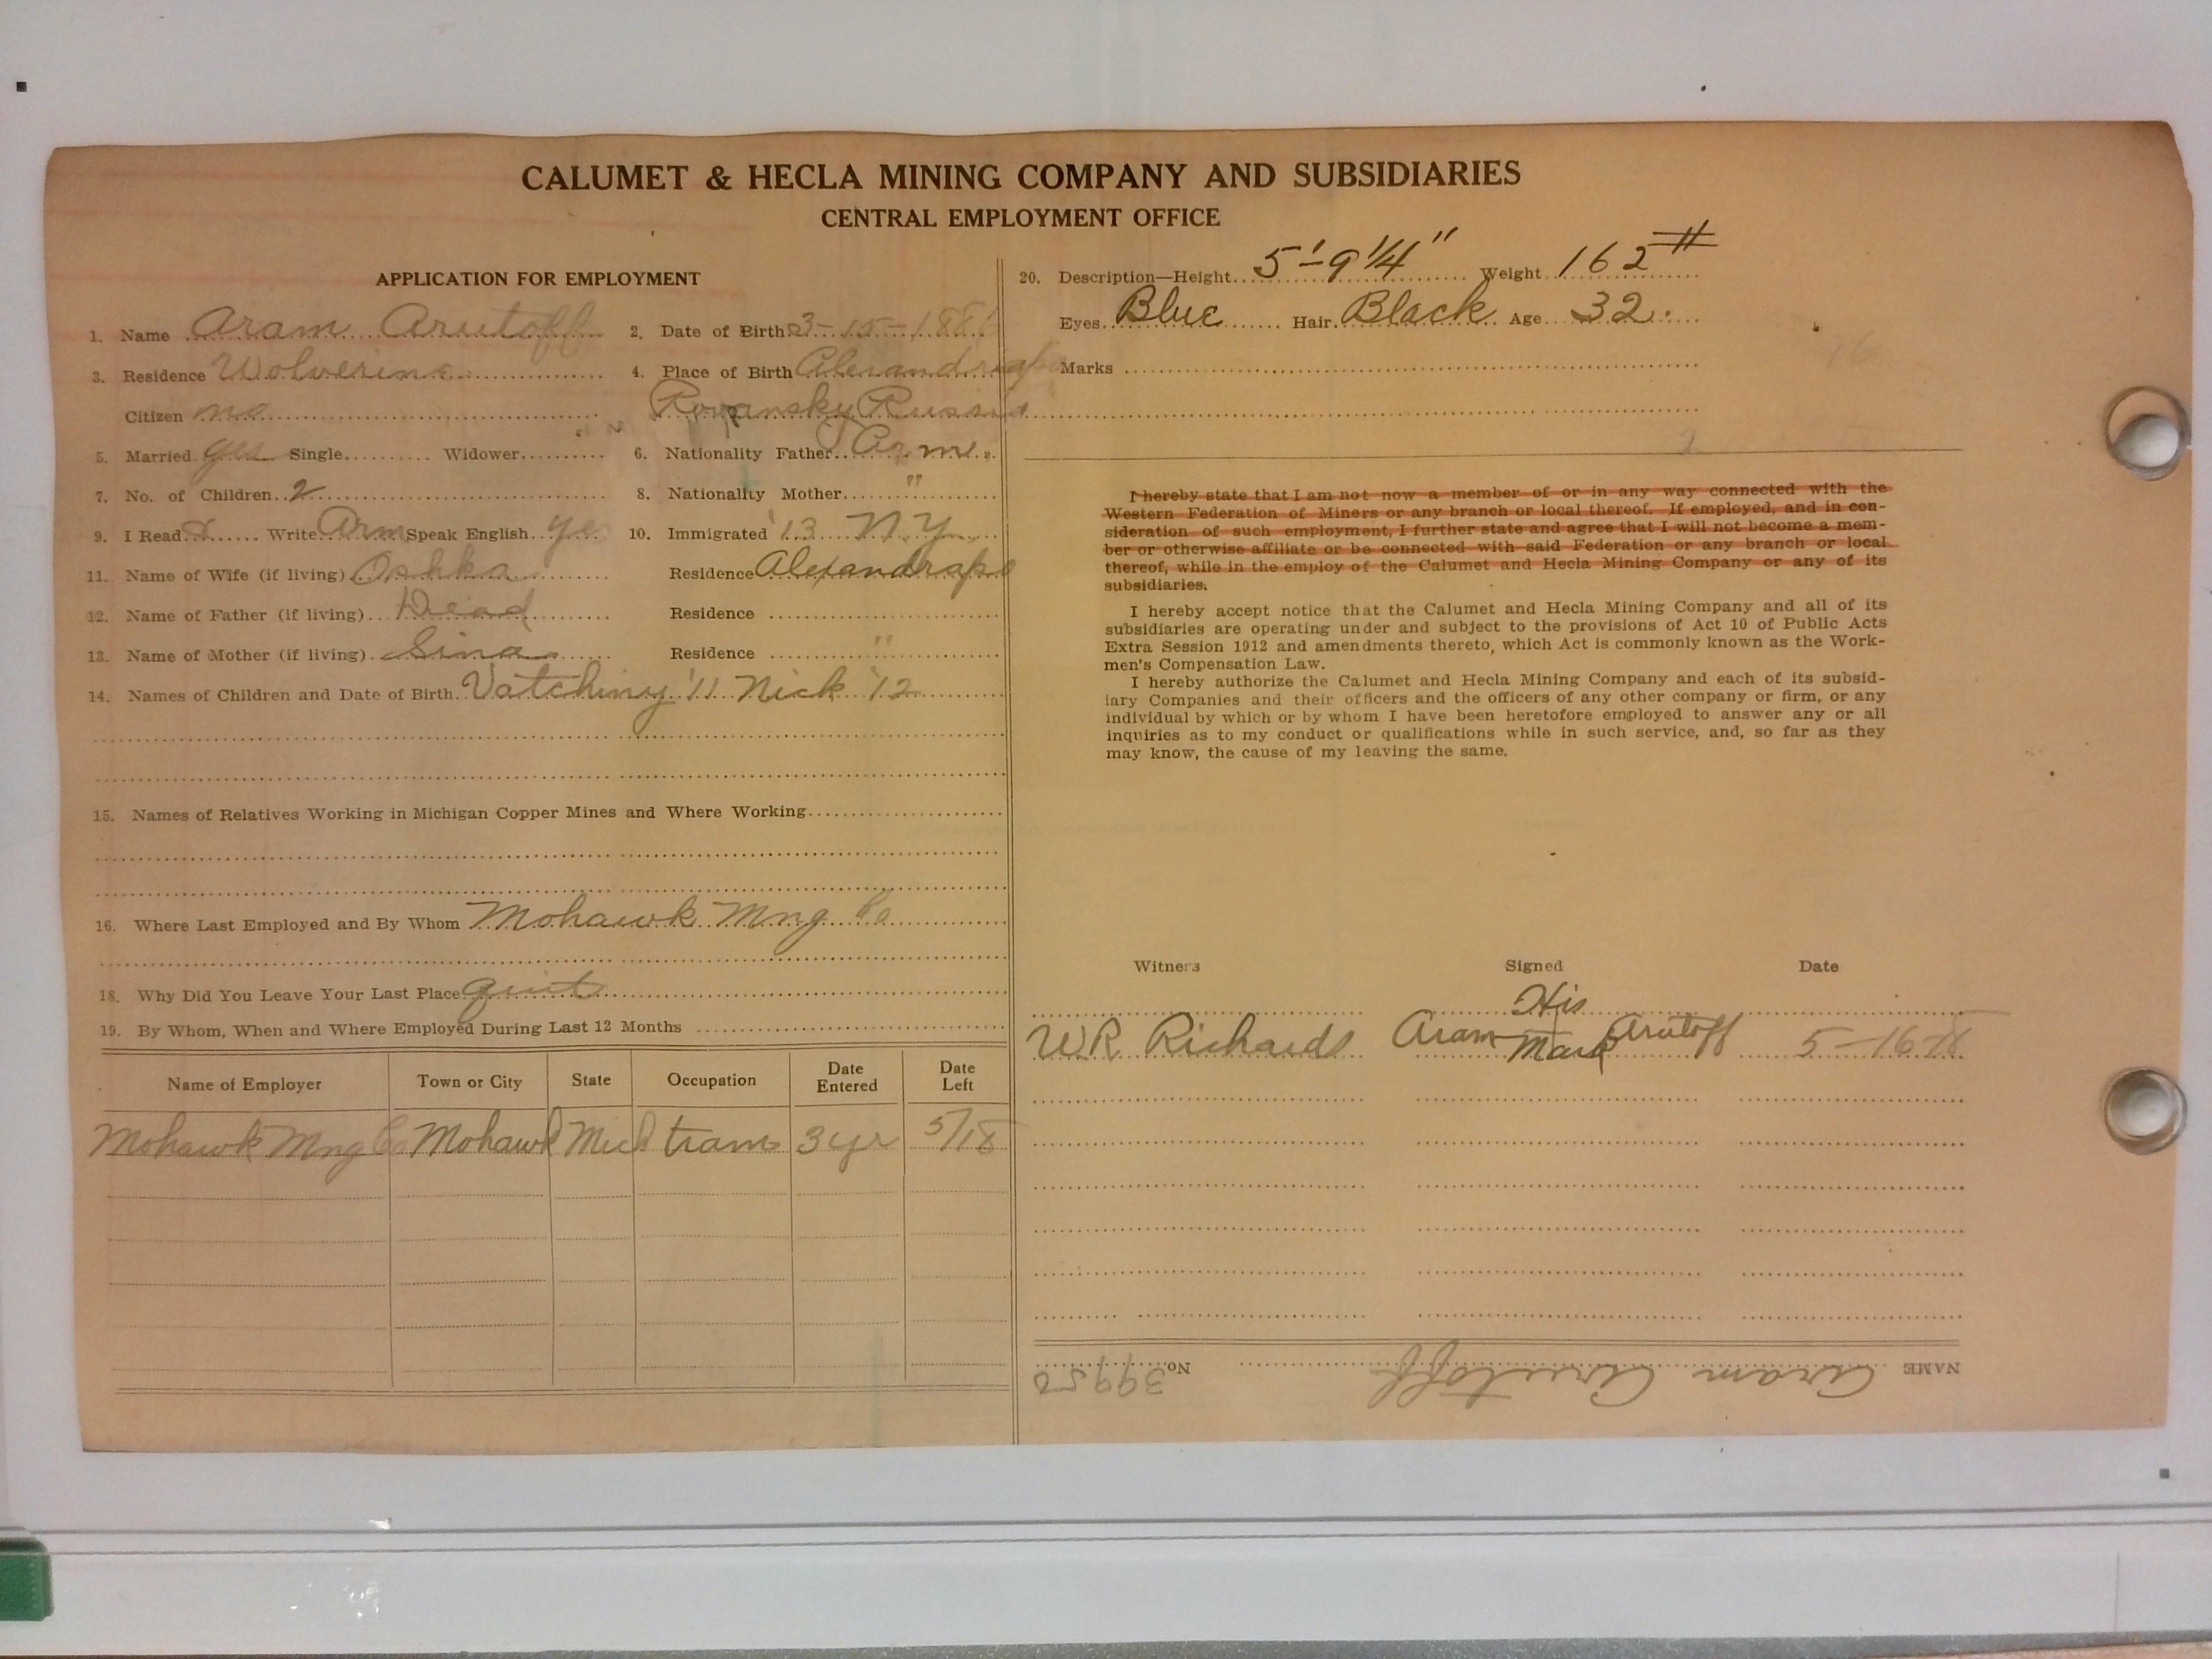 CALUMET & HECLA MINING COMPANY AND SUBSIDIARIES
CENTRAL EMPLOYMENT OFFICE
APPLICATION FOR EMPLOYMENT
1. Name Aram Arutoff 2. Date of Birth 3-15-1886
3. Residence Wolverine 4. Place of Birth Alexandrapo
Citizen no Russia
5. Married yes Single Widower 6. Nationality Father Arm.
7. No. of Children 2 8. Nationality Mother "
9. I Read Write Arm Speak English yes 10. Immigrated '13 NY
11. Name of Wife (if living) Oshka Residence Alexandrapo
12. Name of Father (if living) Dead Residence
13. Name of Mother (if living) Sina Residence "
14. Names of Children and Date of Birth Vatchiny '11 Nick '12
15. Names of Relatives Working in Michigan Copper Mines and Where Working
16. Where Last Employed and By Whom Mohawk Mng Co
18. Why Did You Leave Your Last Place quit
19. By Whom, When and Where Employed During Last 12 Months
Name of Employer Town or City State Occupation Date Entered Date Left
Mohawk Mng Co Mohawk Mich tram 3 yr 5/18
20. Description—Height 5'-9 1/4" Weight 162 #
Eyes Blue Hair Black Age 32.
Marks
I hereby state that I am not now a member of or in any way connected with the
Western Federation of Miners or any branch or local thereof. If employed, and in con-
sideration of such employment, I further state and agree that I will not become a mem-
ber or otherwise affiliate or be connected with said Federation or any branch or local
thereof, while in the employ of the Calumet and Hecla Mining Company or any of its
subsidiaries.
I hereby accept notice that the Calumet and Hecla Mining Company and all of its
subsidiaries are operating under and subject to the provisions of Act 10 of Public Acts
Extra Session 1912 and amendments thereto, which Act is commonly known as the Work-
men's Compensation Law.
I hereby authorize the Calumet and Hecla Mining Company and each of its subsid-
iary Companies and their officers and the officers of any other company or firm, or any
individual by which or by whom I have been heretofore employed to answer any or all
inquiries as to my conduct or qualifications while in such service, and, so far as they
may know, the cause of my leaving the same.
Witness Signed Date
His
W R Richards Aram Mark Arutoff 5-16-18
NAME Aram Arutoff No. 39950